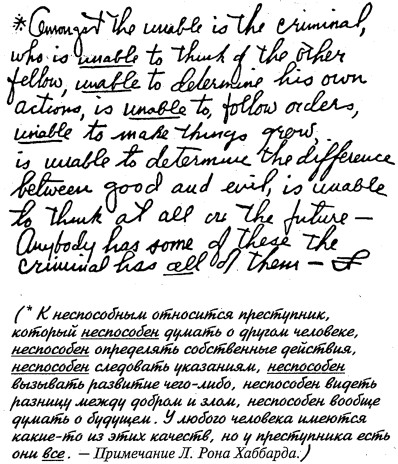 * Amongst the unable is the criminal,
who is unable to think of the other
fellow, unable to determine his own
actions, is unable to, follow orders,
unable to make things grow,
is unable to determine the difference
between good and evil, is unable
to think at all on the future –
Anybody has some of these the
criminal has all of them –
(* К неспособным относится преступник,
который неспособен думать о другом человеке,
неспособен определять собственные действия,
неспособен следовать указаниям, неспособен
вызывать развитие чего-либо, неспособен видеть
разницу между добром и злом, неспособен вообще
думать о будущем. У любого человека имеются
какие-то из этих качеств, но у преступника есть
они все. — Примечание Л. Рона Хаббарда.)